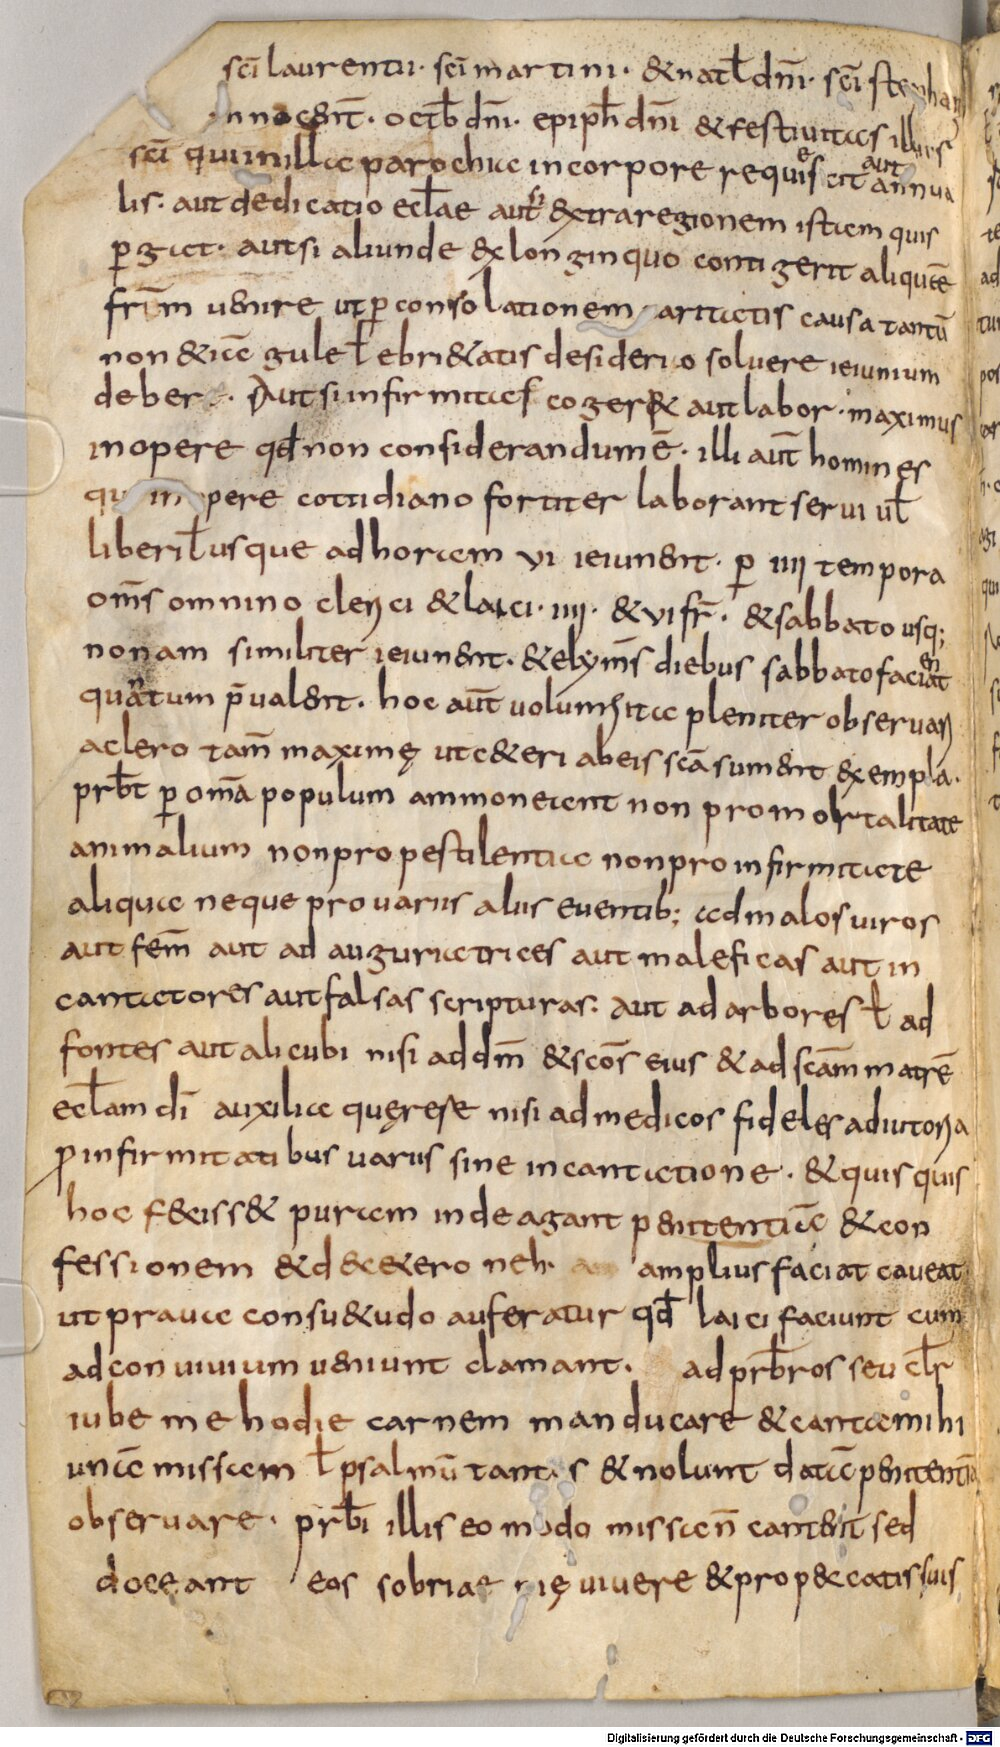 sc̄i laurentii · sc̄i martini · & natł dn̄i · sc̄i stephani
innocent̄ · octb̄ dn̄i · epiph̄ dn̄i & festiuitas illius
sc̄i qui in illa parochia in corpore requiescit aut annua
lis · aut dedicatio ecl̄ae aut si extra regionem istam quis
pergat · aut si aliunde ex longinquo contigerit aliquē
frm̄ uenire ut p̱ consolationem caritatis causa tantū
non etiā gule ł ebrietatis desiderio soluere ieiunium
debet · Aut si infirmitas cogeret aut labor · maximus
in opere qđ non considerandum ē · illi aut̄ homines
qui in opere cottidiano fortiter laborant serui uł
liberi ł usque ad horam vi ieiunent · p̱ iiii tempora
om̄s omnino clerici & laici · iiii · & vi fr̄ · & sabbato usq;
nonam similiter ieiunent · & elym̄s diebus sabbato faciant
quantum p̄ualent · hoc aut̄ uolumus ita pleniter obseruari
a clero tam̄ maximę ut ceteri ab eis sc̄a sumant exempla ·
prb̄t p̱ om̄a populum ammoneant non pro mortalitate
animalium non pro pestilentia non pro infirmitate
aliqua neque pro uariis aliis euentib; ad malos uiros
aut fem̄ aut ad auguriatrices aut maleficas aut in
cantatores aut falsas scripturas · aut ad arbores ł ad
fontes aut alicubi nisi ad dm̄ & sc̄os eius & ad sc̄am matrē
ecl̄am dī auxilia quęrere nisi ad medicos fideles adiutoria
p̱ infirmitatibus uariis sine incantatione · & quisquis
hoc fecisset puram inde agant penitentiā & con
fessionem & de cetero neh · amplius faciat caueat
ut praua consuetudo auferatur qđ laici faciunt cum
ad conuiuium ueniunt clamant · ad prb̄ros seu cl̄r
iube me hodie carnem manducare & canta mihi
unā missam ł psalmū tantis & nolunt datā penitentiā
obseruare · prb̄i illis eo modo missam̄ cantent sed
doceant eos sobriae pię uiuere & pro peccatis suis
Digitalisierung gefördert durch die Deutsche Forschungsgemeinschaft - DFG